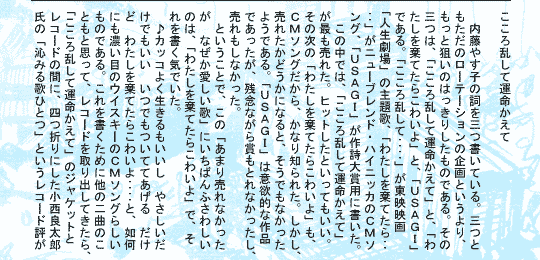 こころ乱して運命かえて
内藤やす子の詞を三つ書いている。三つと
もただのローテーションの企画というより、
もっと狙いのはっきりしたものである。その
三つは、「こころ乱して運命かえて」と、「わ
たしを棄てたらこわいよ」と、「ＵＳＡＧＩ」
である。「こころ乱して‥‥」が東映映画
「人生劇場」の主題歌、「わたしを棄てたら‥
‥」がニューブレンド・ハイニッカのＣＭソ
ング、「ＵＳＡＧＩ」が作詩大賞用に書いた。
この中では、「こころ乱して運命かえて」
が最も売れた。ヒットしたといってもいい。
その次の「わたしを棄てたらこわいよ」も、
ＣＭソングだから、かなり知られた。しかし、
売れたかどうかになると、そうでもなかった
ようである。「ＵＳＡＧＩ」は意欲的な作品
であったが、残念ながら賞もとれなかったし、
売れもしなかった。
ということで、この「あまり売れなかった
が、なぜか愛しい歌」にいちばんふさわしい
のは、「わたしを棄てたらこわいよ」で、そ
れを書く気でいた。
♪カッコよく生きるもいいし　やさしいだ
けでもいい　いつでもついててあげる　だけ
ど　わたしを棄てたらこわいよ‥‥と、如何
にも濃い目のウイスキーのＣＭソングらしい
ものである。これを書くために他の二曲のこ
ともと思って、レコードを取り出してきたら、
「こころ乱して運命かえて」のジャケットと
レコードの間に、四つ折りにした小西良太郎
氏の「沁みる歌ひとつ」というレコード評が